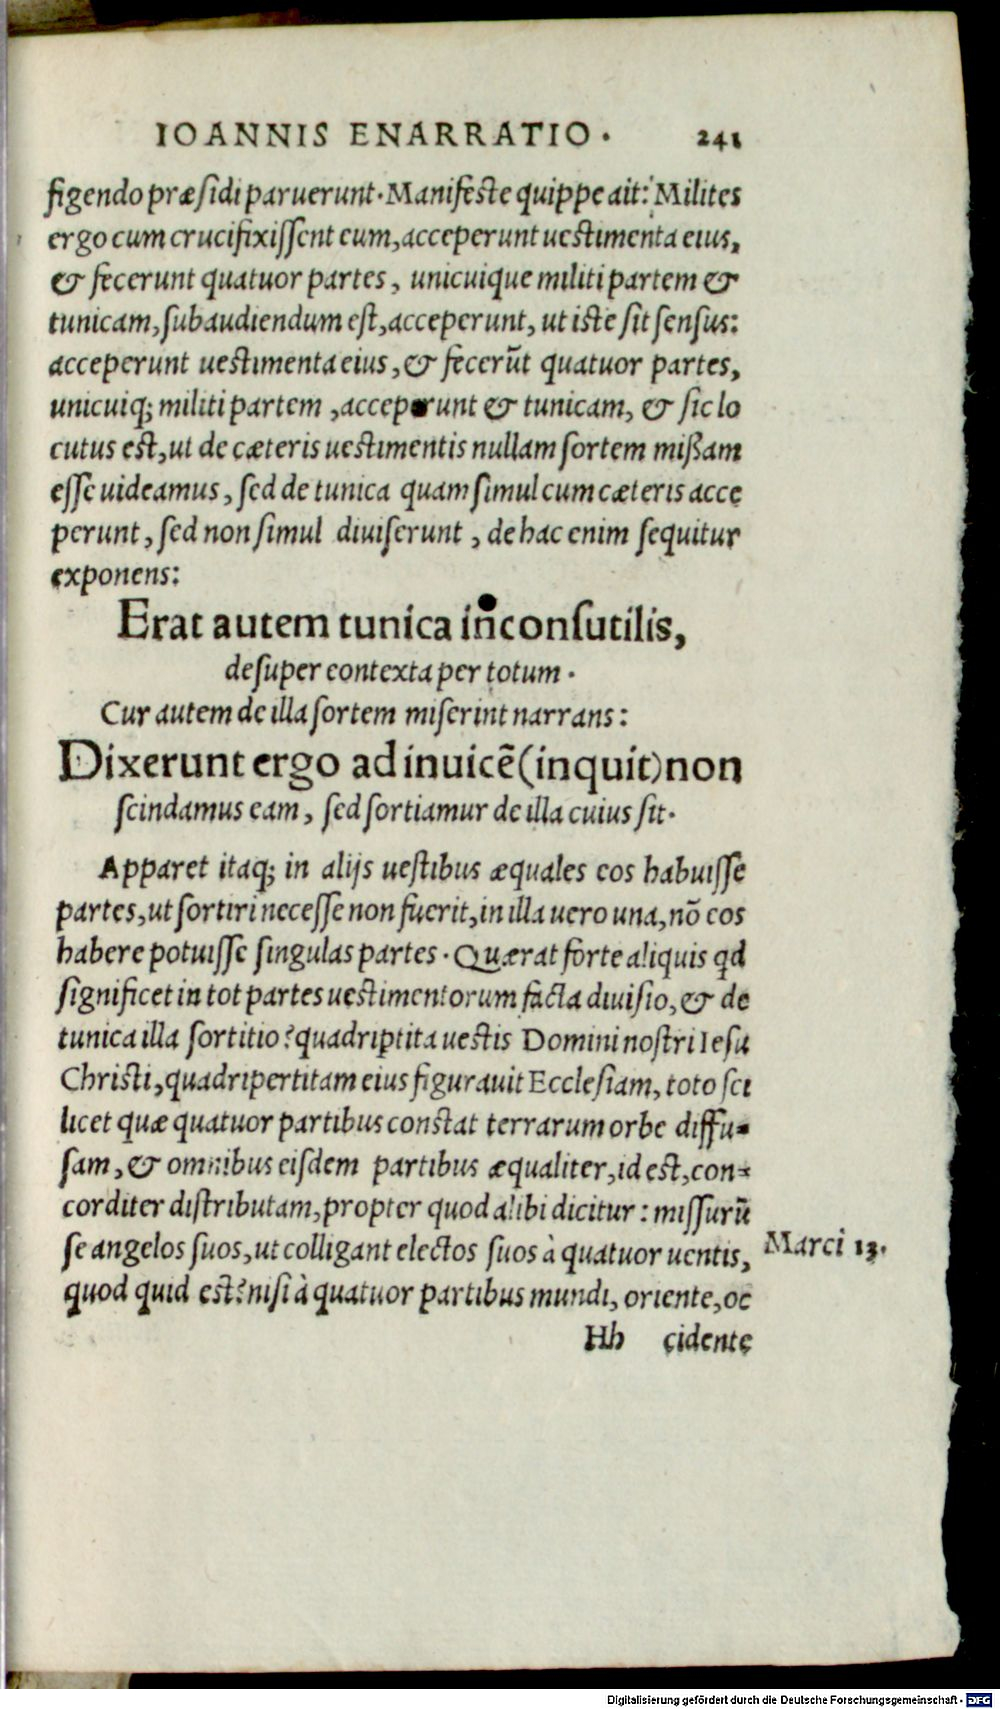 IOANNIS ENARRATIO. 241
figendo præsidi paruerunt. Manifeste quippe ait: Milites
ergo cum crucifixissent eum, acceperunt uestimenta eius,
& fecerunt quatuor partes, unicuique militi partem &
tunicam, subaudiendum est, acceperunt, ut iste sit sensus:
acceperunt uestimenta eius, & fecerūt quatuor partes,
unicuiq; militi partem, acceperunt & tunicam, & sic lo
cutus est, ut de cæteris uestimentis nullam sortem mißam
esse uideamus, sed de tunica quam simul cum cæteris acce
perunt, sed non simul diuiserunt, de hac enim sequitur
exponens:
Erat autem tunica inconsutilis,
desuper contexta per totum.
Cur autem de illa sortem miserint narrans:
Dixerunt ergo ad inuicē (inquit) non
scindamus eam, sed sortiamur de illa cuius sit.
Apparet itaq; in alijs uestibus æquales eos habuisse
partes, ut sortiri necesse non fuerit, in illa uero una, nō eos
habere potuisse singulas partes. Quærat forte aliquis qd
significet in tot partes uestimentorum facta diuisio, & de
tunica illa sortitio? quadriptita uestis Domini nostri Iesu
Christi, quadripertitam eius figurauit Ecclesiam, toto sci
licet quæ quatuor partibus constat terrarum orbe diffu-
sam, & omnibus eisdem partibus æqualiter, id est, con-
corditer distributam, propter quod alibi dicitur: missurū
se angelos suos, ut colligant electos suos à quatuor uentis,
Marci 13.
quod quid est? nisi à quatuor partibus mundi, oriente, oc
Hh cidente
Digitalisierung gefördert durch die Deutsche Forschungsgemeinschaft - DFG